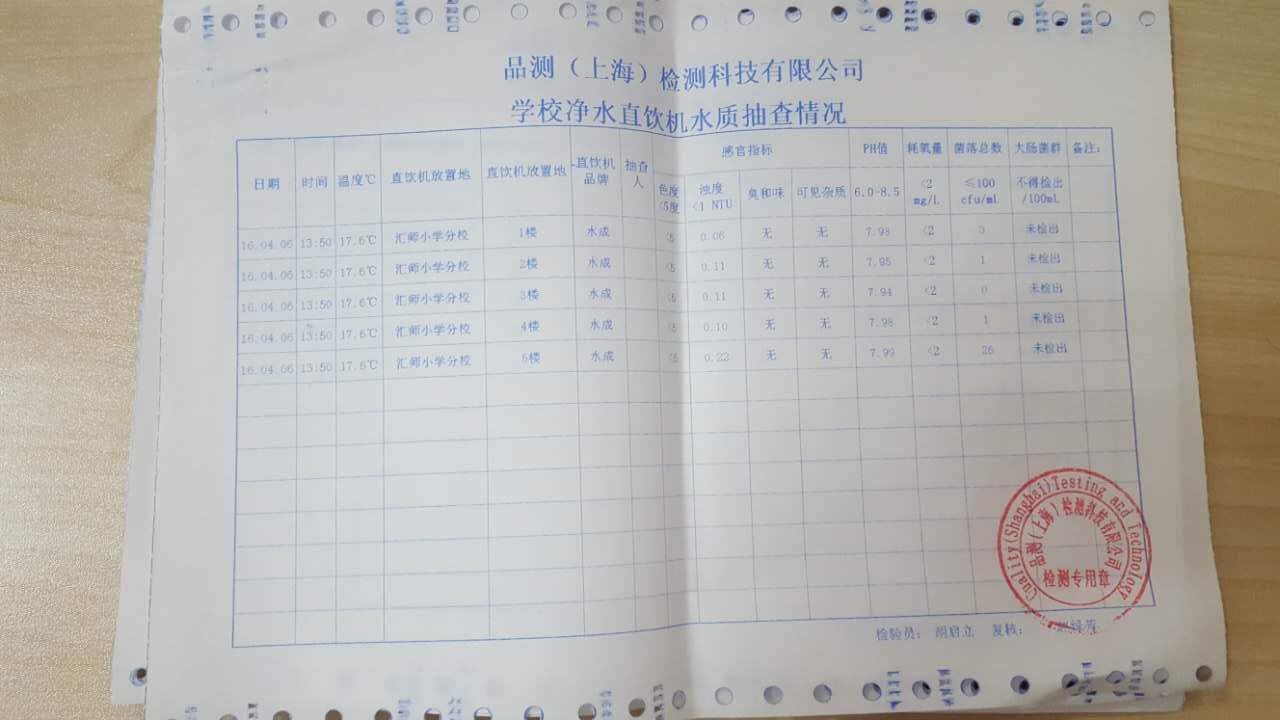 品测（上海）检测科技有限公司
学校净水直饮机水质抽查情况
日期 时间 温度℃ 直饮机放置地 直饮机放置地 直饮机品牌 抽查人 感官指标 PH值 耗氧量 菌落总数 大肠菌群 备注:
色度<5度 浊度<1 NTU 臭和味 可见杂质 6.0-8.5 <2 mg/L ≤100 cfu/mL 不得检出/100mL
16.04.06 13:50 17.6℃ 汇师小学分校 1楼 水成 <5 0.06 无 无 7.98 <2 3 未检出
16.04.06 13:50 17.6℃ 汇师小学分校 2楼 水成 <5 0.11 无 无 7.95 <2 1 未检出
16.04.06 13:50 17.6℃ 汇师小学分校 3楼 水成 <5 0.11 无 无 7.94 <2 0 未检出
16.04.06 13:50 17.6℃ 汇师小学分校 4楼 水成 <5 0.10 无 无 7.98 <2 1 未检出
16.04.06 13:50 17.6℃ 汇师小学分校 5楼 水成 <5 0.22 无 无 7.99 <2 26 未检出
Quality(Shanghai)Testing and Technology
品测(上海)检测科技有限公司
检测专用章
检验员: 胡启立 复核: